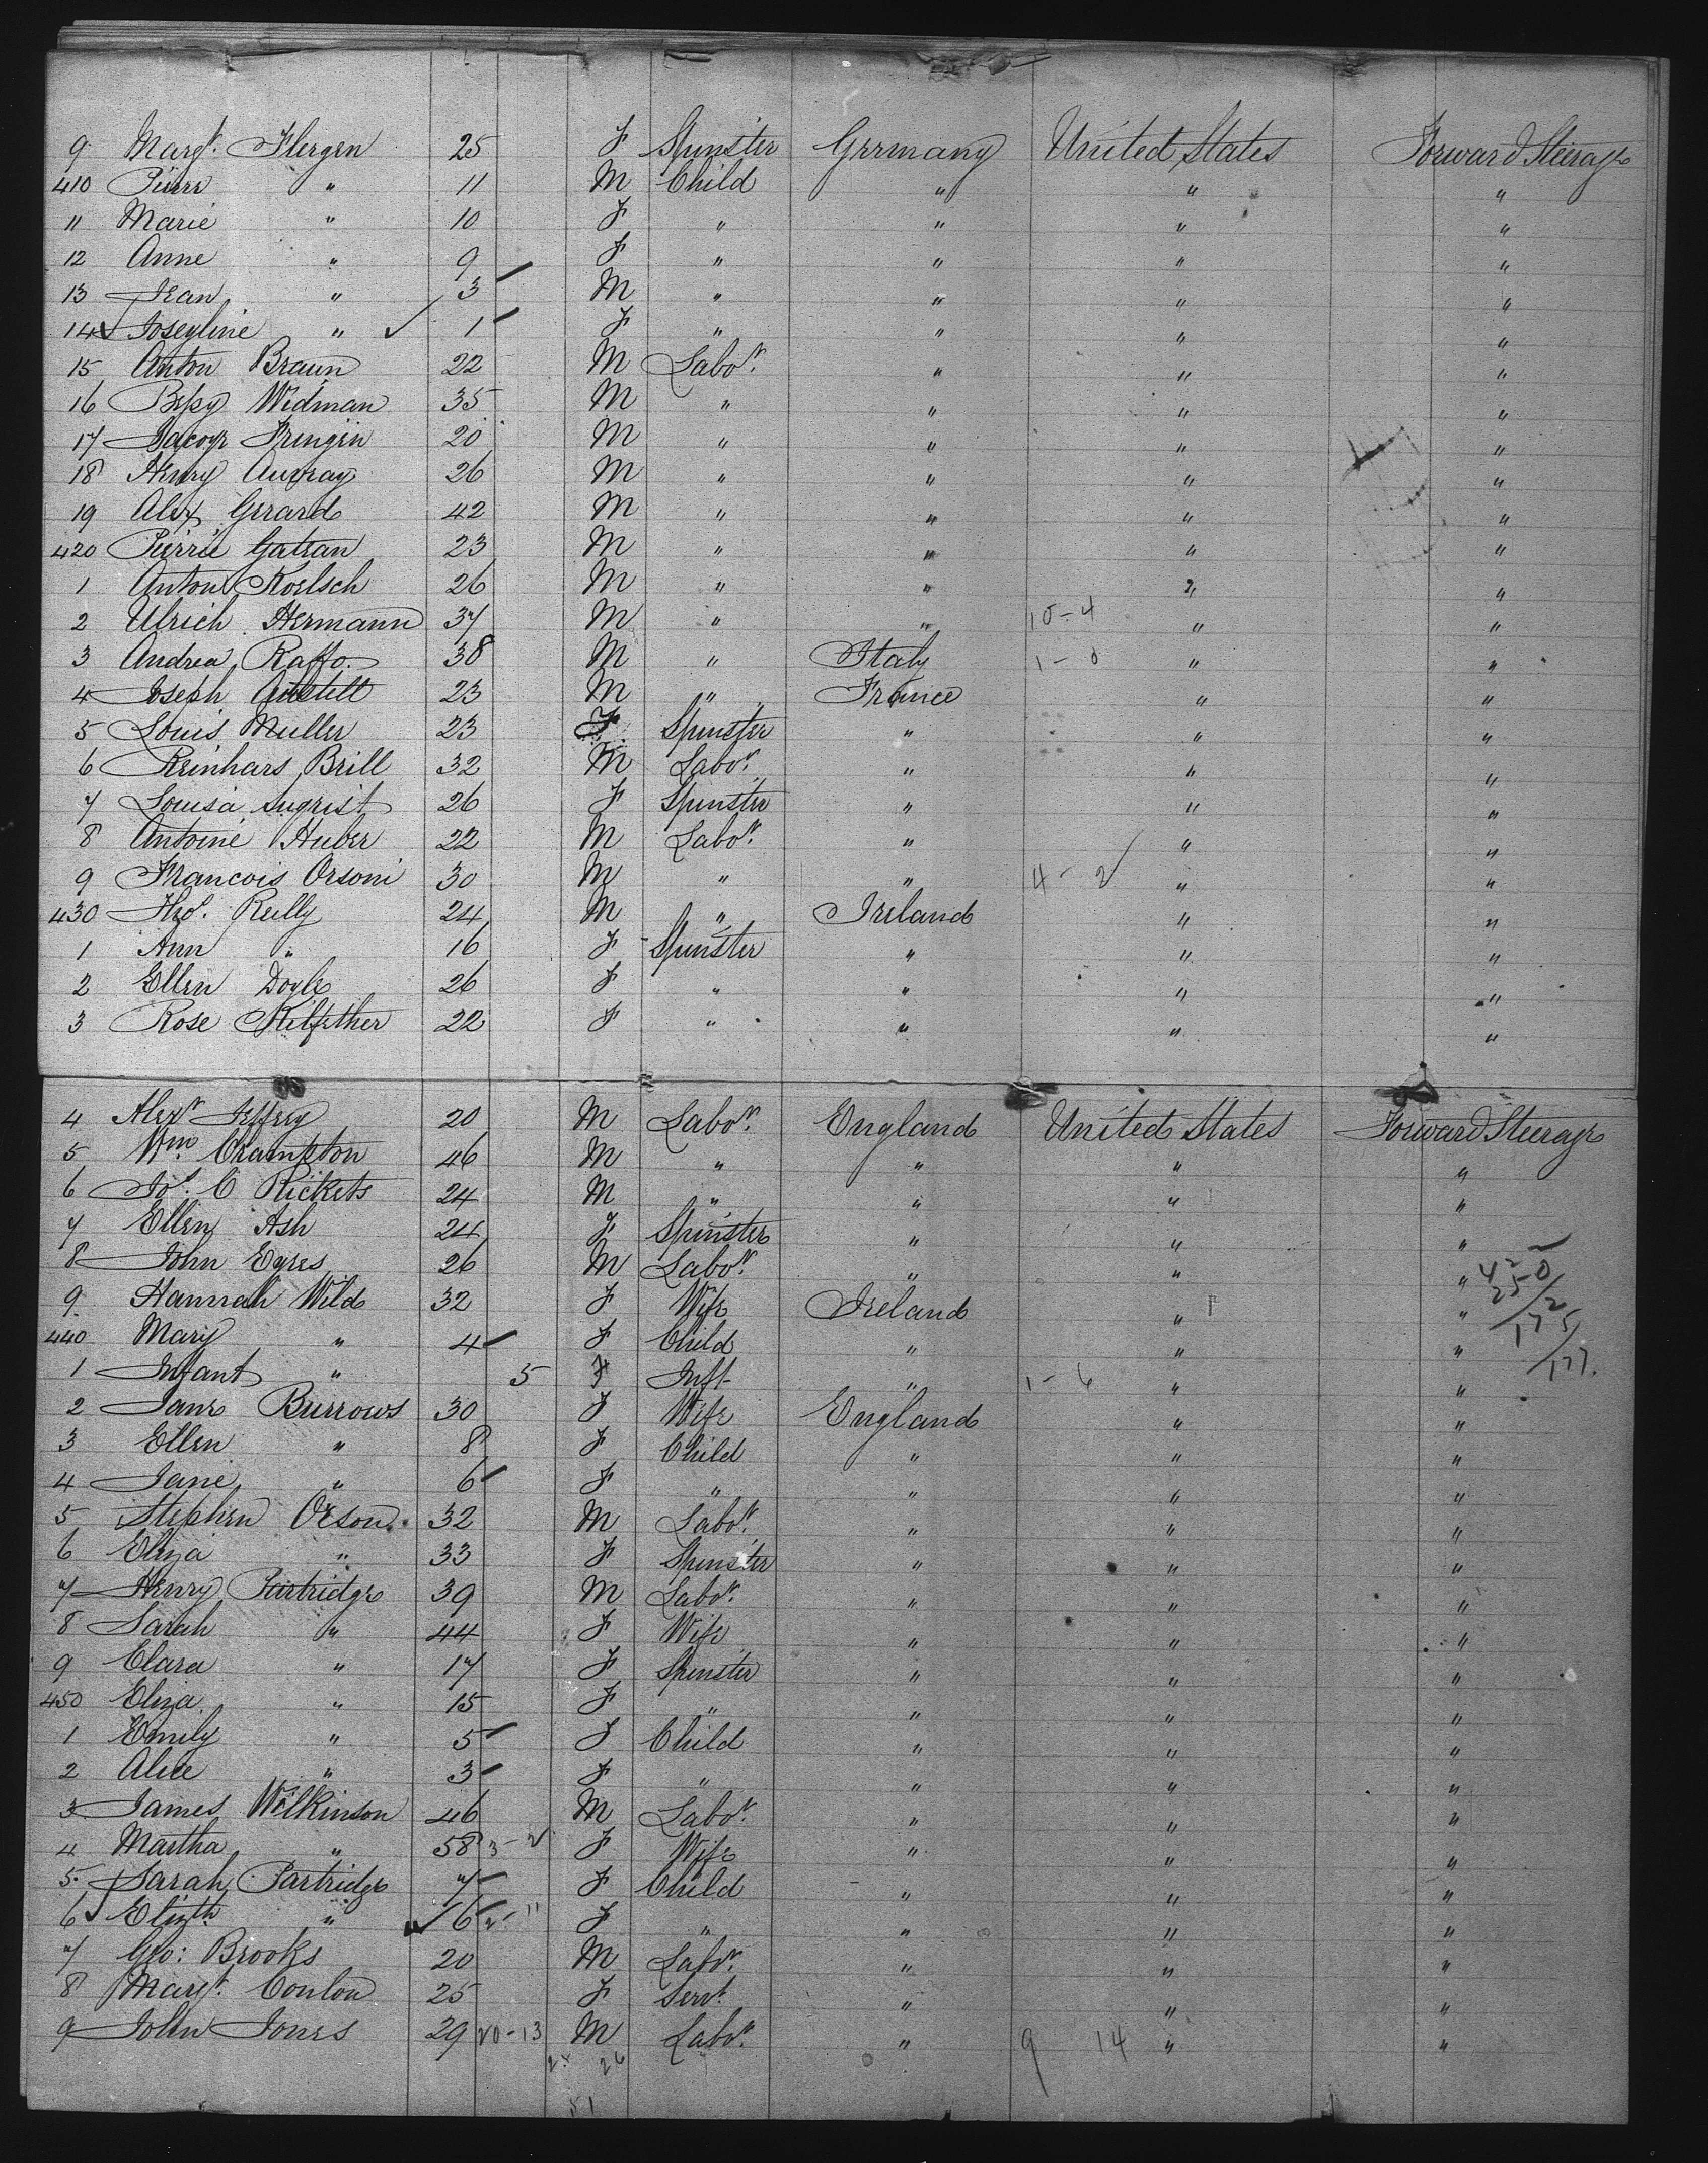 9 Margt. Flergen 25 F Spinster Germany United States Forward Steerage
410 Pierre " 11 M Child " " "
11 Marie " 10 F " " " "
12 Anne " 9 F " " " "
13 Jean " 3 M " " " "
14 Josephine " 1 F " " " "
15 Anton Braun 22 M Labor. " " "
16 Widman 35 M " " " "
17 20 M " " " "
18 Henry 26 M " " " "
19 Alex Gerard 42 M " " " "
420 Pierrie Gatran 23 M " " " "
1 Anton Koelsch 26 M " " " "
2 Ulrich Hermann 37 M " " 10-4 " "
3 Andrea Raffo 38 M " Italy 1-0 " "
4 Joseph 23 M " France " "
5 Louis Muller 23 F Spinster " " "
6 Reinhars Brill 32 M Labor. " " "
7 Louisa Sugrist 26 F Spinster " " "
8 Antoine Huber 22 M Labor. " " "
9 Francois Orsoni 30 M " " 4-2 " "
430 Thos. Reilly 24 M " Ireland " "
1 Ann " 16 F Spinster " " "
2 Ellen Doyle 26 F " " " "
3 Rose Kilfether 22 F " " " "
4 Alexr Jeffrey 20 M Labor. England United States Forward Steerage
5 Wm. Crampton 46 M " " " "
6 Jos. C Rickets 24 M " " " "
7 Ellen Ash 24 F Spinster " " "
8 John Eyres 26 M Labor. " " "
9 Hannah Wild 32 F Wife Ireland " "
440 Mary " 4 F Child " " "
1 Infant " 5 F Inft " 1-6 " "
2 Jane Burrows 30 F Wife England " "
3 Ellen " 8 F Child " " "
4 Jane " 6 F " " " "
5 Stephen Orson 32 M Labor. " " "
6 Eliza " 33 F Spinster " " "
7 Henry Partridge 39 M Labor. " " "
8 Sarah " 44 F Wife " " "
9 Clara " 17 F Spinster " " "
450 Eliza " 15 F " " " "
1 Emily " 5 F Child " " "
2 Alice " 3 F " " " "
3 James Wilkinson 46 M Labor. " " "
4 Martha " 58 F Wife " " "
5 Sarah Partridge 7 F Child " " "
6 Elizth " 6 F " " " "
7 Geo: Brooks 20 M Labor. " " "
8 Margt. Conlon 25 F Servt. " " "
9 John Jones 29 20-13 M Labor. " 9 14 " "
51